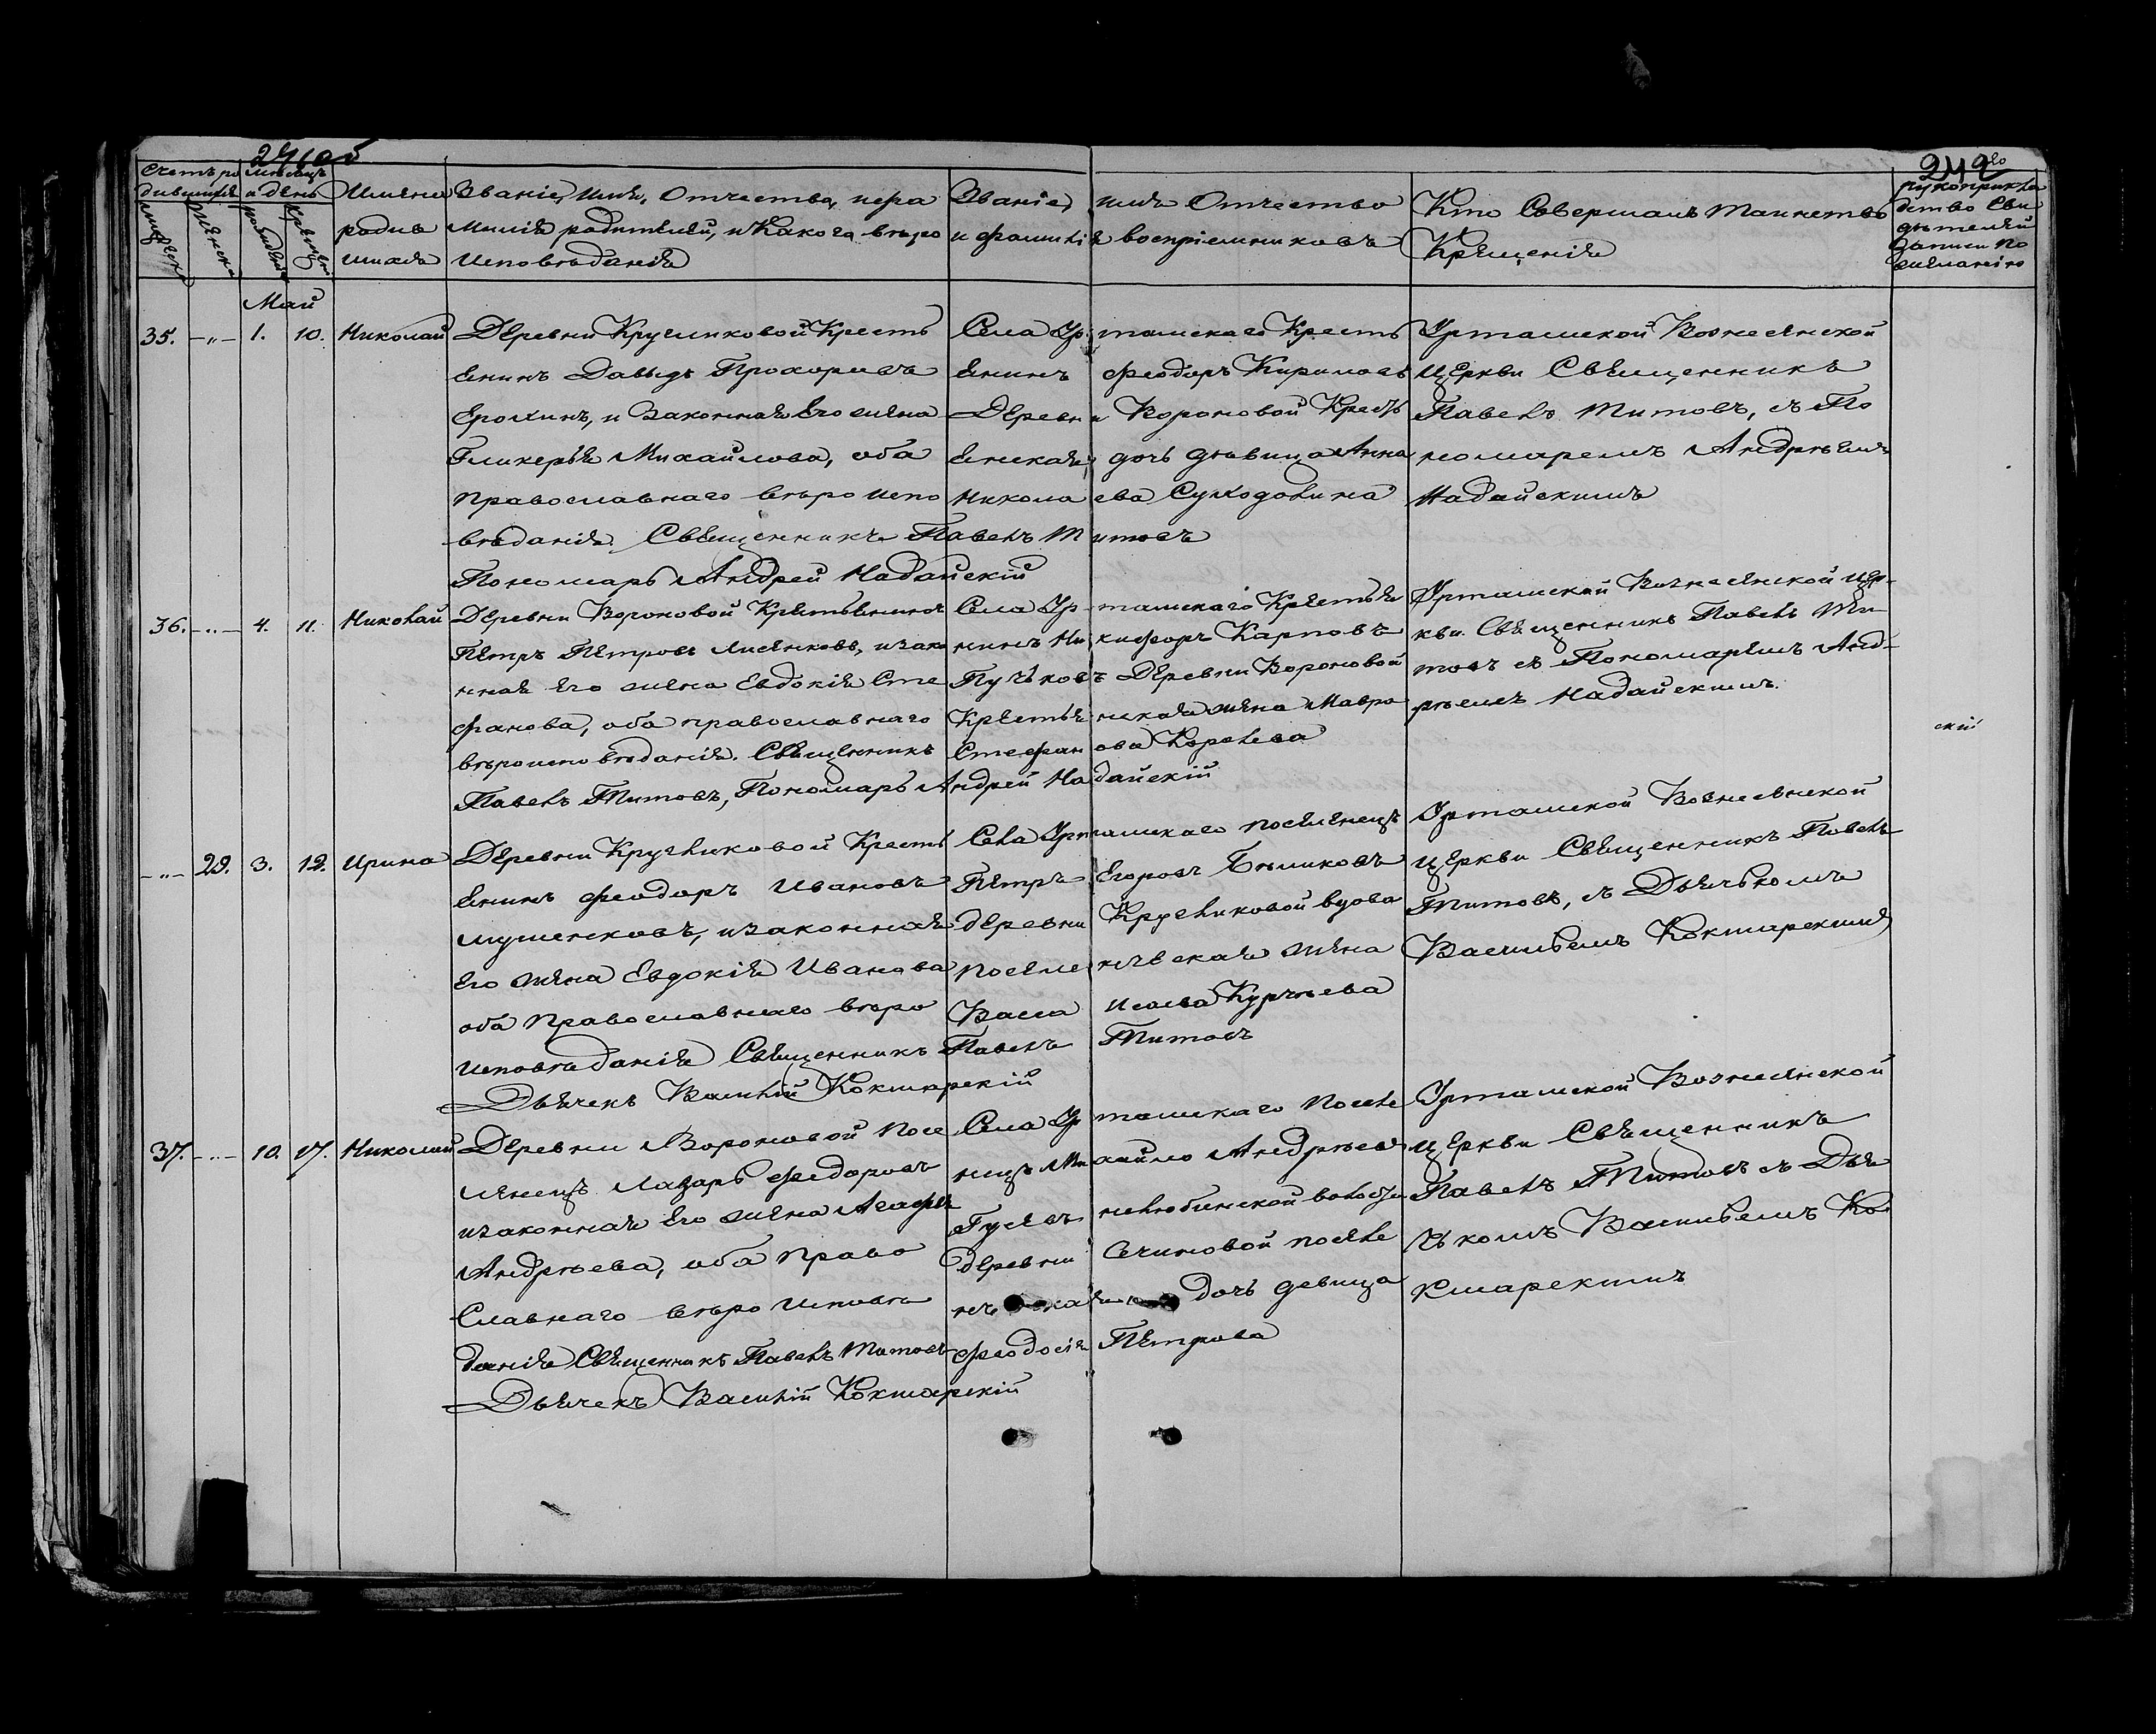 241 об
242
Счетъ ро
дившихся
Мѣсяцъ
и день
мужеска
женска
рожденія
крещенія
Имена
родив
шихся
Званіе, Имя, Отчество, и фа
милія родителей, и Какого вѣро
исповѣданія
Званіе, имя Отчество
и фамилія воспріемниковъ
Кто Совершалъ Таинство
Крещенія
рукоприкла
дство Сви
дѣтелей
записи по
желанію
Май
35. —„— 1. 10. Николай
Деревни Кругликовой Кресть
янинъ Давыдъ Прохоровъ
Ерохинъ, и Законная Его жена
Гликерья Михайлова, оба
православнаго вѣро испо
вѣданія. Священникъ Павелъ Титовъ
Пономарь Андрей Надайскій
Села Уртамскаго Кресть
янинъ Феодоръ Кириловъ
Деревни Вороновой Кресть
янская дочь дѣвица Анна
Николаева Суходолина
Уртамской Вознесенской
Церкви Священникъ
Павелъ Титовъ, съ По
номаремъ Андрѣемъ
Надайскимъ
36. —„— 4. 11. Николай
Деревни Вороновой Крестьянинъ
Петръ Петровъ Лисенковъ, и зако
нная Его жена Евдокія Сте
фанова, оба православнаго
вѣроисповѣданія. Священникъ
Павелъ Титовъ, Пономарь Андрей Надайскій
Села Уртамскаго Крестья
нинъ Никифоръ Карповъ
Пучковъ Деревни Вороновой
Крестьянская жена Мавра
Стефанова Королева
Уртамской Вознесенской Цер-
кви Священникъ Павелъ Ти-
товъ съ Пономаремъ Анд-
рѣемъ Надайскимъ.
скій
—„— 22. 3. 12. Ирина
Деревни Кругликовой Кресть
янинъ Феодоръ Ивановъ
и законная
Его жена Евдокія Иванова
оба Православнаго вѣро
исповѣданія Священникъ Павелъ Титовъ
Дьячекъ Василій Кокшарскій
Села Уртамскаго поселенецъ
Петръ Егоровъ Бѣликовъ
деревни Кругликовой вдова
поселенческая жена
Васса Исаева Курчѣева
Уртамской Вознесенской
Церкви Священникъ Павелъ
Титовъ, съ Дьячькомъ
Васильемъ Кокшарскимъ
37. —„— 10. 17. Николай
Деревни Вороновой Посе
ленецъ Лазарь Федоровъ
и законная Его жена Агафья
Андрѣева, оба Право
Славнаго вѣро исповѣ
данія Священникъ Павелъ Титовъ
Дьячекъ Василій Кокшарскій
Села Уртамскаго После
нецъ Михайло Андрѣевъ
Гусевъ нелюбинской волости
деревни Сечиновой поселе
дочь девица
Феодосія Петрова
Уртамской Вознесенской
Церкви Священникъ
Павелъ Титовъ съ Дья
чькомъ Васильемъ Ко
кшарскимъ